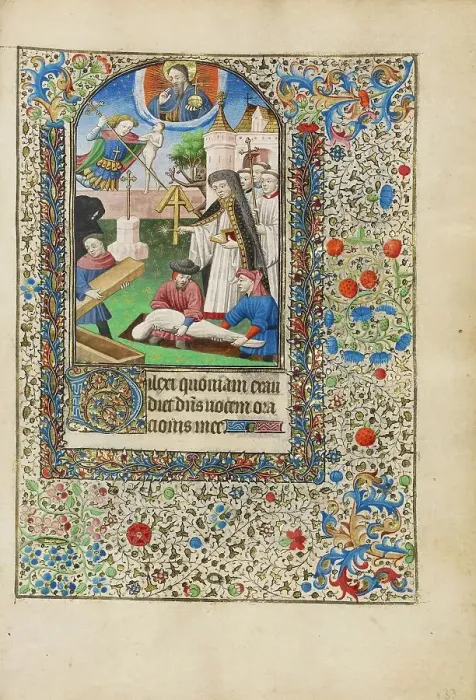 Dilexi quoniam exau
diet dn̄s vocem ora
cionis mee